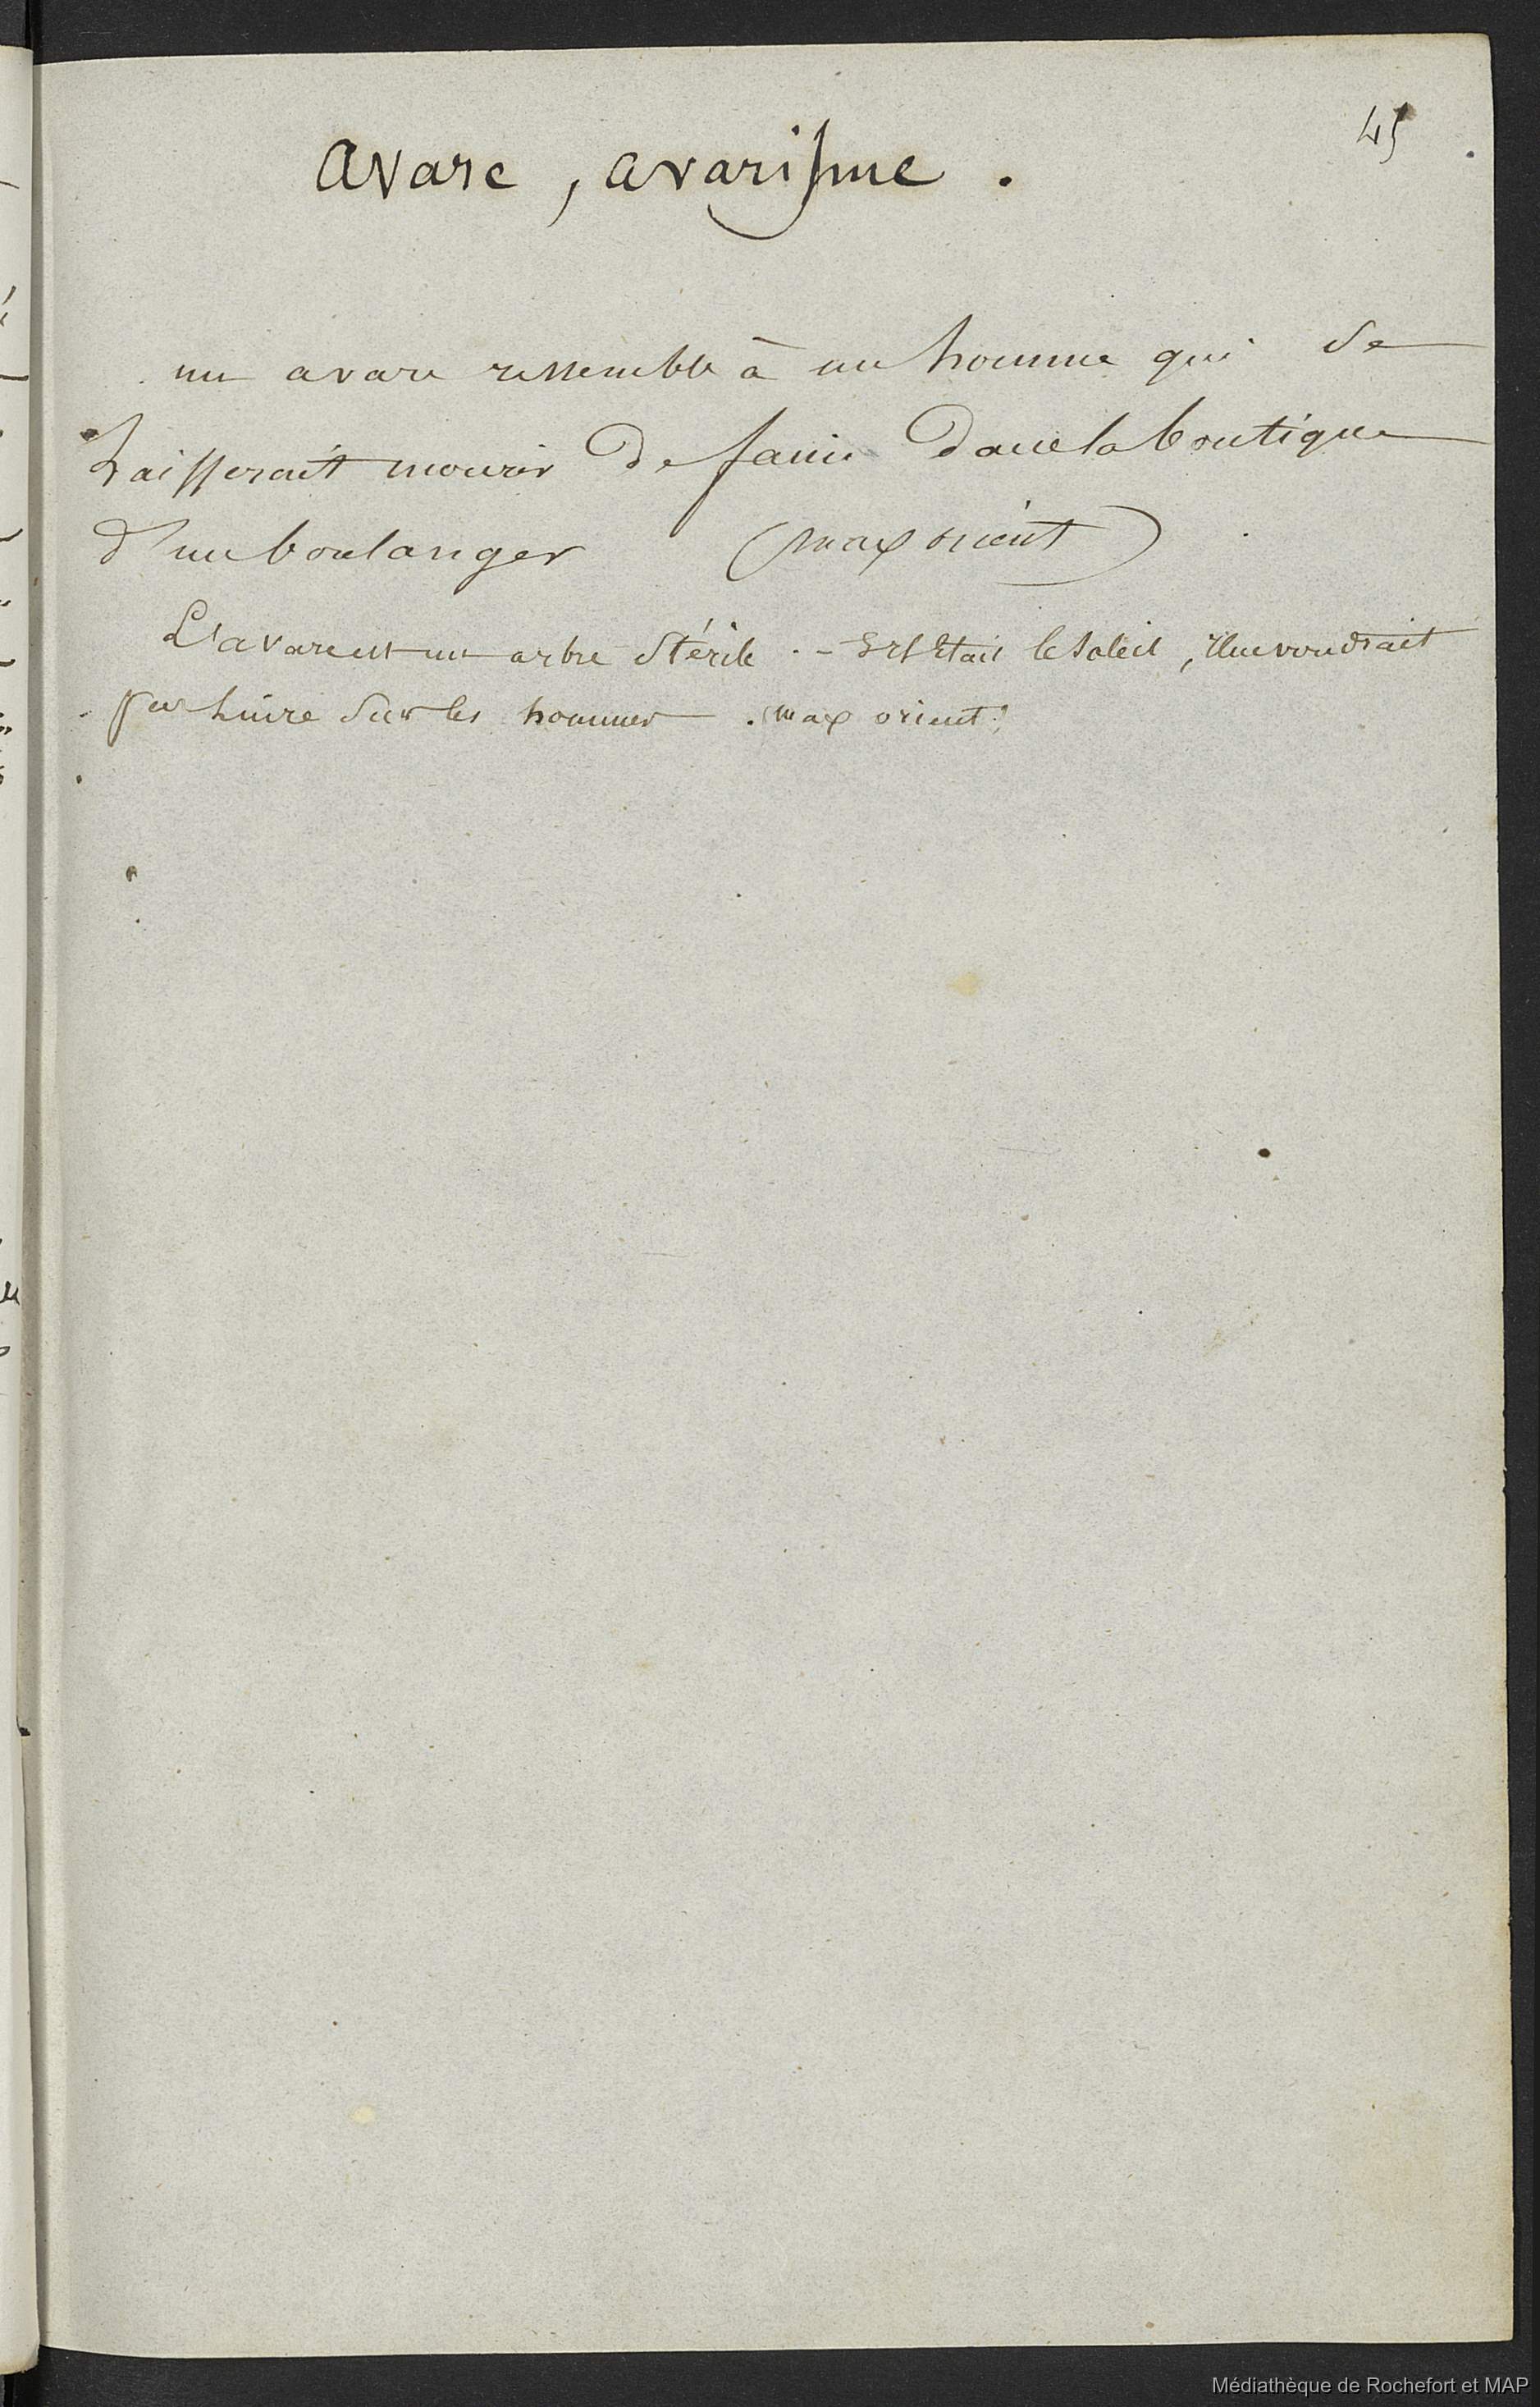 45
avare, avarisme.
un avare ressemble à un homme qui se
Laisserait mourir De faim Dans la boutique
d'un boulanger (max orient)
L'avare est un arbre stérile. - S'il était le soleil, il ne voudrait
pas Luire sur les hommes. (max orient)
Médiathèque de Rochefort et MAP